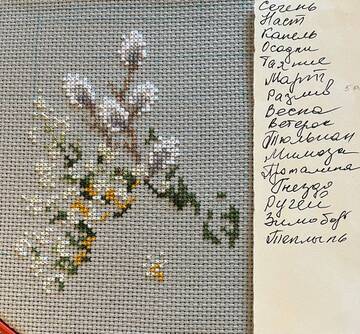 Сечень
Наст
Капель
Осадки
Таяние
Март
Разлив
Весна
Ветерок
Тюльпан
Мимоза
Проталина
Гнездо
Ручей
Зимобор
Теплынь